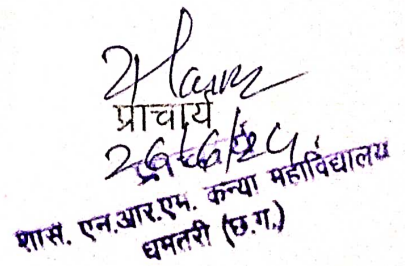 प्राचार्य
26/6/24
शास. एन.आर.एम. कन्या महाविद्यालय
धमतरी (छ.ग.)